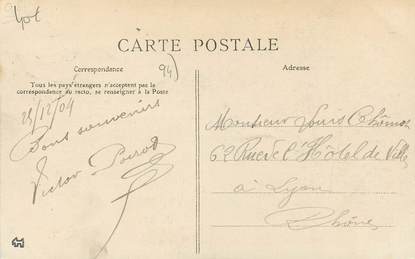 40t
CARTE POSTALE
Correspondance
94)
Adresse
Tous les pays étrangers n'acceptent pas le
correspondance au recto, se renseigner à la Poste
25/12/04
Bons souvenirs
Victor
Monsieur Louis Thômas
62 Rue de l'Hôtel de Ville
à Lyon
Rhône